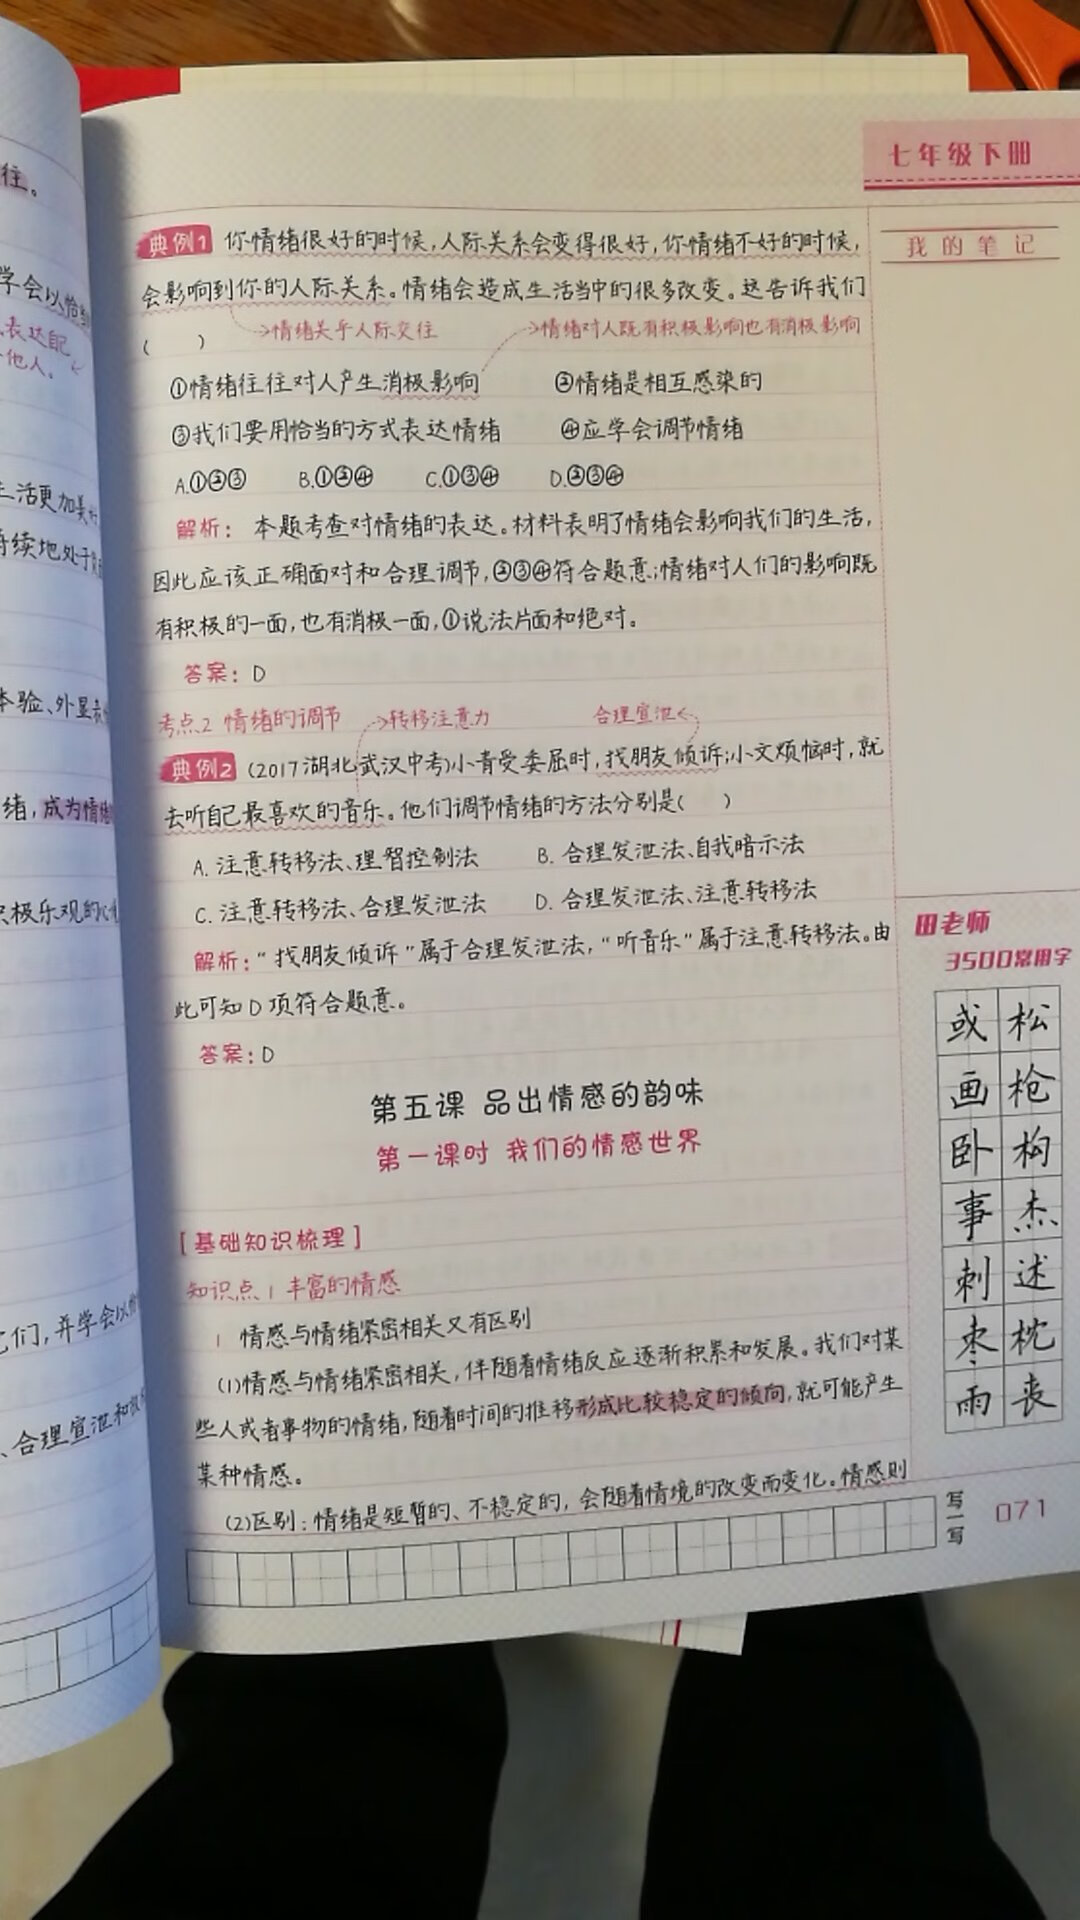 往。
学会以恰当
表达自己
他人。
生活更加美好
持续地处于负面
体验、外显表
绪，成为情绪
积极乐观的心
它们，并学会以恰
、合理宣泄和
七年级下册
我的笔记
典例1 你情绪很好的时候，人际关系会变得很好，你情绪不好的时候，
会影响到你的人际关系。情绪会造成生活当中的很多改变。这告诉我们
(　　) →情绪关乎人际交往 →情绪对人既有积极影响也有消极影响
①情绪往往对人产生消极影响 ②情绪是相互感染的
③我们要用恰当的方式表达情绪 ④应学会调节情绪
A.①②③ B.①②④ C.①③④ D.②③④
解析：本题考查对情绪的表达。材料表明了情绪会影响我们的生活，
因此应该正确面对和合理调节，②③④符合题意；情绪对人们的影响既
有积极的一面，也有消极一面，①说法片面和绝对。
答案：D
考点2 情绪的调节 →转移注意力 合理宣泄←
典例2 (2017湖北武汉中考)小青受委屈时，找朋友倾诉；小文烦恼时，就
去听自己最喜欢的音乐。他们调节情绪的方法分别是(　　)
A. 注意转移法、理智控制法 B. 合理发泄法、自我暗示法
C. 注意转移法、合理发泄法 D. 合理发泄法、注意转移法
解析：“找朋友倾诉”属于合理发泄法，“听音乐”属于注意转移法。由
此可知D项符合题意。
答案：D
第五课 品出情感的韵味
第一课时 我们的情感世界
[基础知识梳理]
知识点1 丰富的情感
1 情感与情绪紧密相关又有区别
(1)情感与情绪紧密相关，伴随着情绪反应逐渐积累和发展。我们对某
些人或者事物的情绪，随着时间的推移形成比较稳定的倾向，就可能产生
某种情感。
(2)区别：情绪是短暂的、不稳定的，会随着情境的改变而变化。情感则
田老师
3500常用字
或 松
画 枪
卧 构
事 杰
刺 述
枣 枕
雨 丧
写一写
071